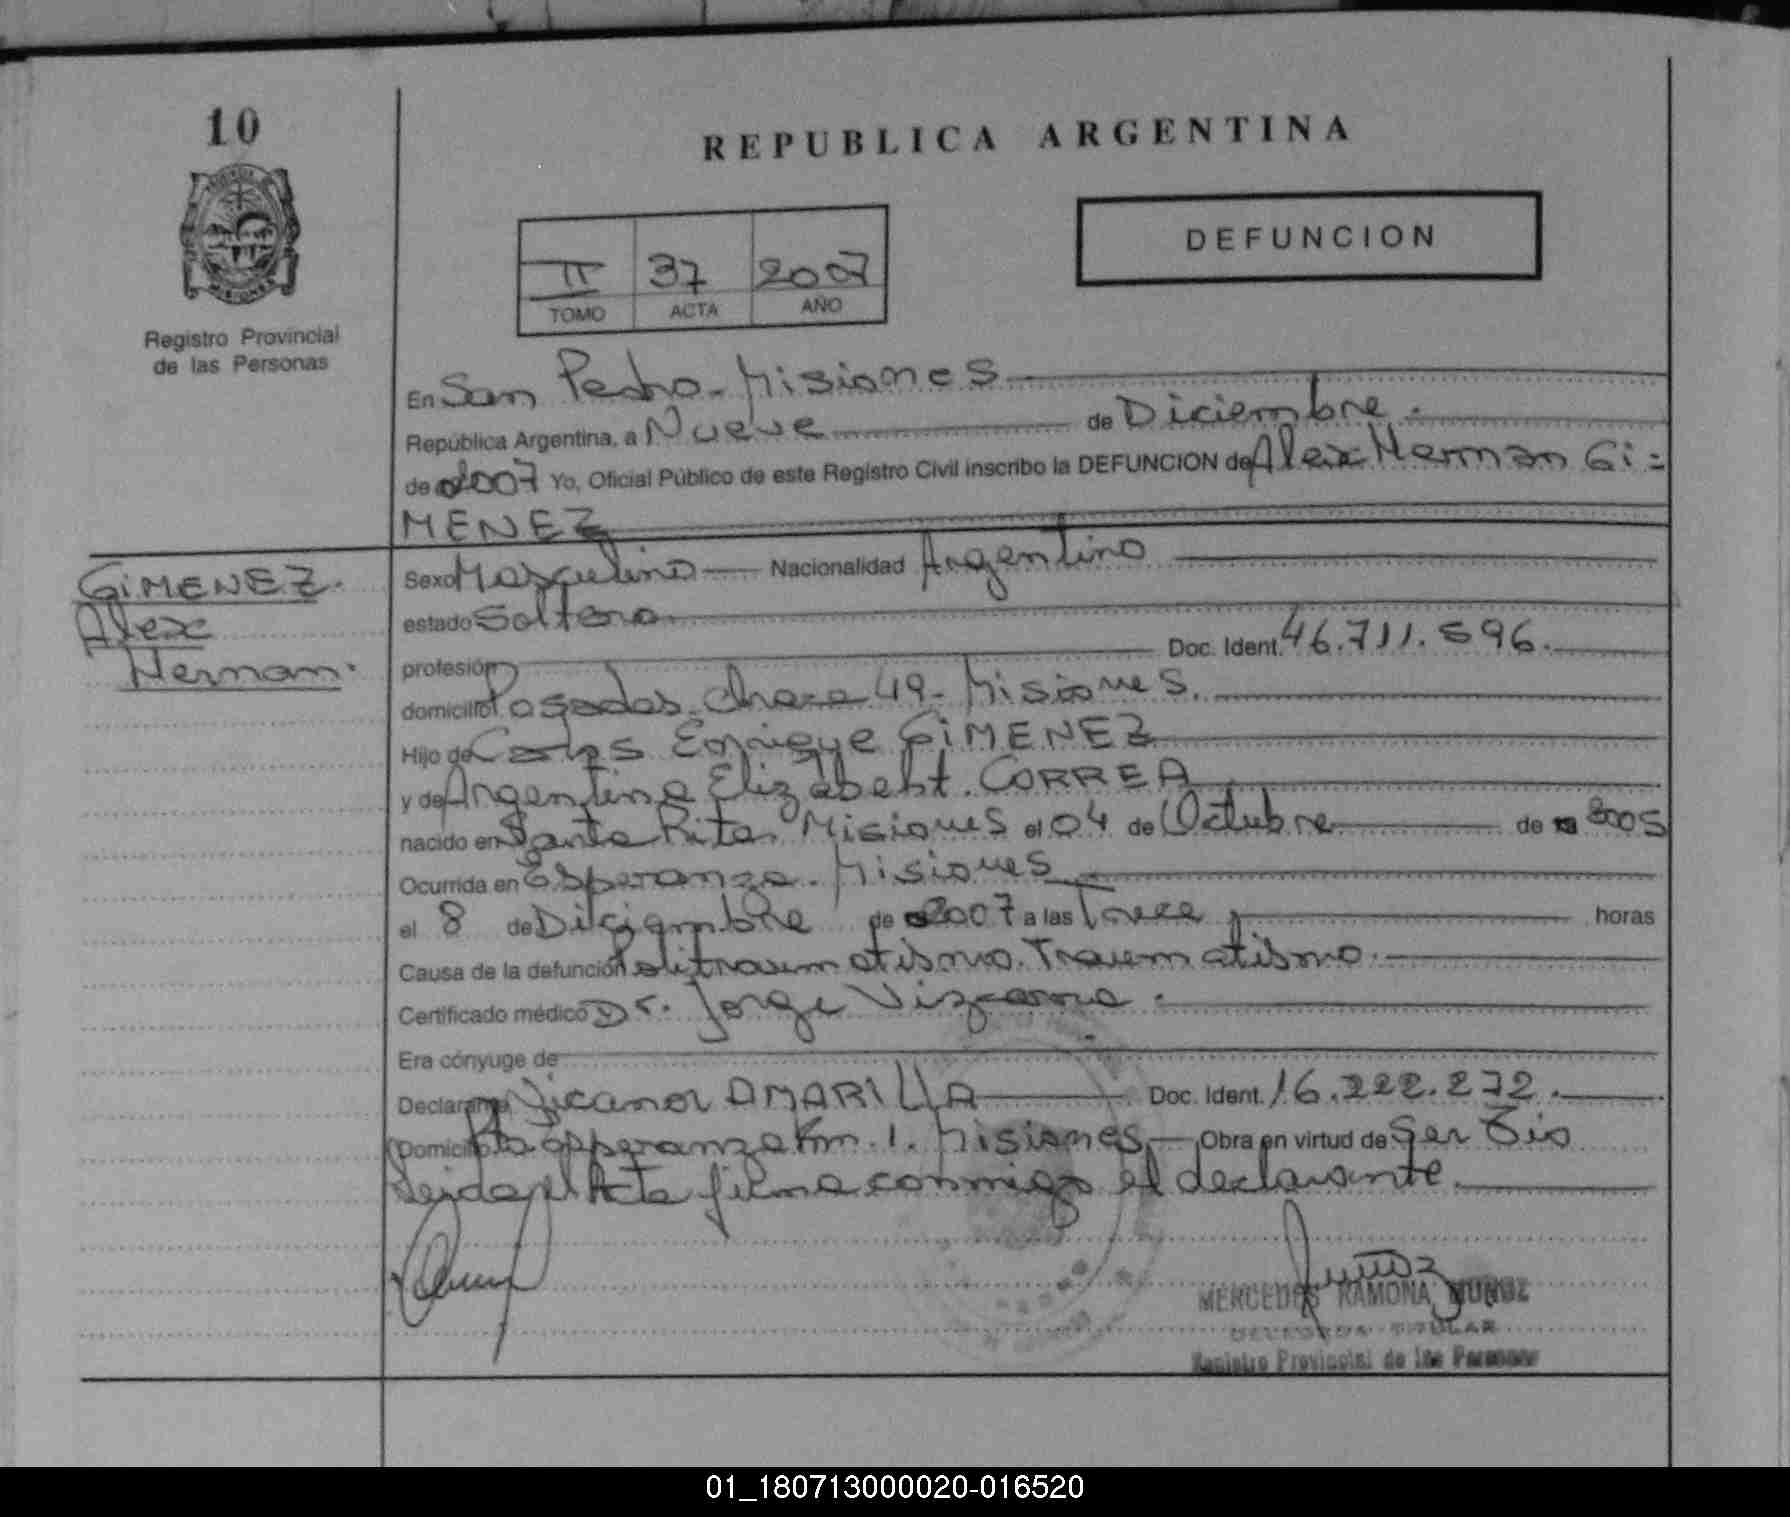 10
REPUBLICA ARGENTINA
DEFUNCION
II 37 2007
TOMO ACTA AÑO
MISIONES
Registro Provincial
de las Personas
En San Pedro - Misiones
República Argentina, a Nueve de Diciembre.
de 2007 Yo, Oficial Público de este Registro Civil inscribo la DEFUNCION de Alex Hernan Gi=
MENEZ
GiMENEZ.
Alex
Hernan.
Sexo Masculino Nacionalidad Argentino
estado Soltero
profesión Doc. Ident. 46.711.596.
domicilio Posadas. Chara 49 - Misiones.
Hijo de Carlos Enrique GiMENEZ
y de Argentina Elizabeht. CORREA
nacido en Santa Rita. Misiones el 04 de Octubre de 2005
Ocurrida en Esperanza. Misiones
el 8 de Diciembre de 2007 a las Trece horas
Causa de la defunción Politraumatismo. Traumatismo.
Certificado médico Dr. Jorge Vizcarra.
Era cónyuge de
Declarante Nicanor AMARILLA Doc. Ident. 16.222.272.
Domicilio Pto esperanza Km. 1. Misiones Obra en virtud de Ser Tio
Leida el Acta firma conmigo el declarante.
MERCEDES RAMONA MUÑOZ
DELEGADA TITULAR
Registro Provincial de las Personas
01_180713000020-016520